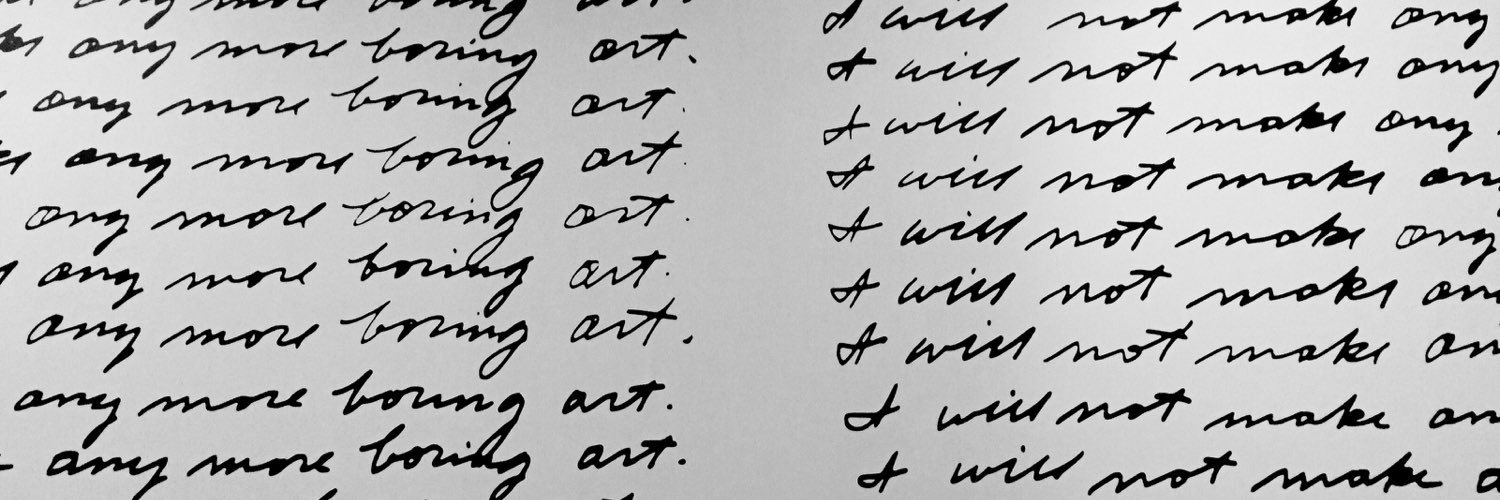 any more boring art.
any more boring art.
any more boring art.
any more boring art.
any more boring art.
any more boring art.
any more boring art.
any more boring art.
any more boring art.
I will not make any
I will not make any
I will not make any
I will not make
I will not make any
I will not make
I will not make
I will not make
I will not make